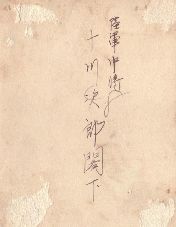 陸軍中将
十川次郎閣下